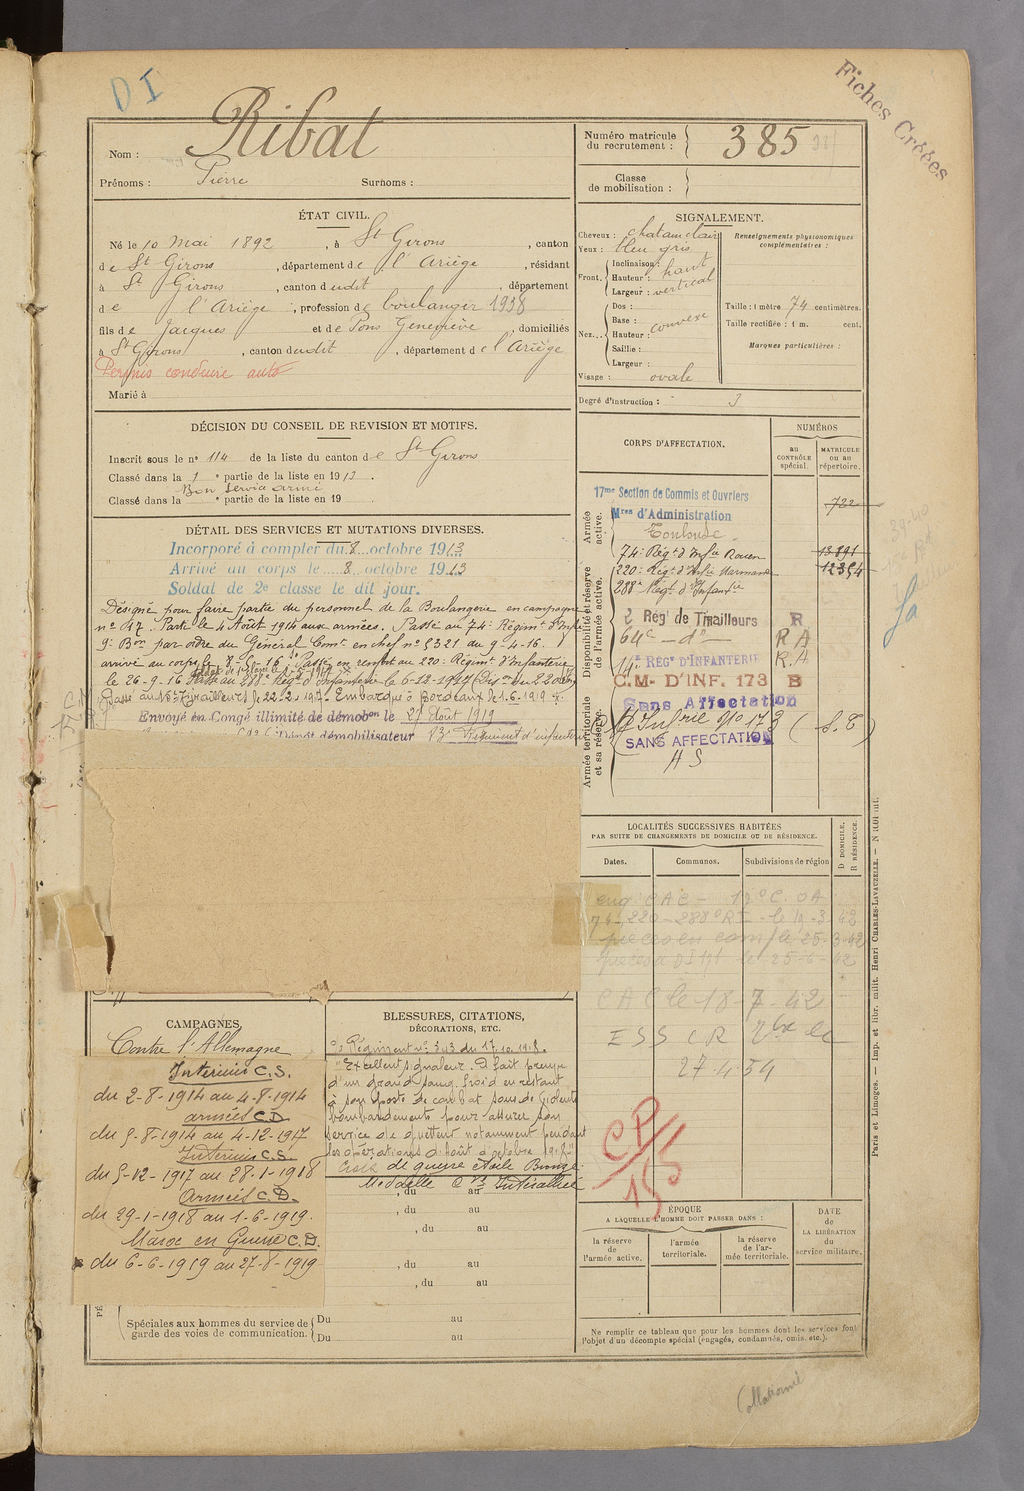 D I
Fiches Créées
Nom : Ribat
Prénoms : Pierre Surnoms :
Numéro matricule du recrutement : 385
Classe de mobilisation :
ÉTAT CIVIL.
Né le 10 Mai 1892, à St Girons, canton
de St Girons, département de l'Ariège, résidant
à St Girons, canton dudit, département
de l'Ariège, profession de boulanger 1938
fils de Jacques et de Pons Geneviève, domiciliés
à St Girons, canton dudit, département de l'Ariège
Permis conduire auto
Marié à
SIGNALEMENT.
Cheveux : chatain clair
Yeux : bleu gris
Front. Inclinaison :
Hauteur : haut
Largeur : vertical
Nez... Dos :
Base :
Hauteur : convexe
Saillie :
Largeur :
Visage : ovale
Renseignements physionomiques complémentaires :
Taille : 1 mètre 74 centimètres.
Taille rectifiée : 1 m. cent.
Marques particulières :
Degré d'instruction : 3
DÉCISION DU CONSEIL DE REVISION ET MOTIFS.
Inscrit sous le n° 114 de la liste du canton de St Girons
Classé dans la 1e partie de la liste en 1913.
Bon service armé
Classé dans la e partie de la liste en 19
DÉTAIL DES SERVICES ET MUTATIONS DIVERSES.
Incorporé à compter du 8 octobre 1913
Arrivé au corps le 8 octobre 1913
Soldat de 2e classe le dit jour.
Désigné pour faire partie du personnel de la Boulangerie en campagne
n° 47. Parti le 4 Août 1914 aux armées. Passé au 74e Régiment d'Infie
9e Bon par ordre du Général Comt en chef n° 5321 du 9-4-16.
arrivé au corps le 8-5-16. Passé en renfort au 220e Régiment d'Infanterie
le 26-9-16 Passé au 288e Régt d'Infanterie le 6-12-1917
Tirailleurs le 22-2-1919. Embarqué à Bordeaux le 1-6-1919
Envoyé en Congé illimité de démobon le 27 Août 1919
Dépôt démobilisateur 83e Régiment d'infanterie
CORPS D'AFFECTATION.
NUMÉROS
au CONTRÔLE spécial.
MATRICULE ou au répertoire.
Armée active.
Disponibilité et réserve de l'armée active.
Armée territoriale et sa réserve.
17me Section de Commis et Ouvriers
Mres d'Administration 722
Toulouse
74e Régt d'Infie Rouen 13891
220e Régt d'Infie Marmande 12354
288e Régt d'Infanterie
2 Rég' de Tirailleurs R
64e - do R A
14e RÉGt D'INFANTERIE R.A
C.M- D'INF. 173 B
Sans Affectation
d'Infrie n° 173 (S.T)
SANS AFFECTATION
A S
LOCALITÉS SUCCESSIVES HABITÉES
PAR SUITE DE CHANGEMENTS DE DOMICILE OU DE RÉSIDENCE.
Dates. Communes. Subdivisions de région
D DOMICILE. R RÉSIDENCE.
74-220-288e RI - le 19-3-42
25-3-42
le 25-6-42
CAC le 18-7-42
ESS CR
27-4-54
CP/15
CAMPAGNES
Contre l'Allemagne
Intérieur C.S.
du 2-8-1914 au 4-8-1914
armées C.D
du 5-8-1914 au 4-12-1917
Intérieur C.S.
du 5-12-1917 au 28-1-1918
Armées C.D.
du 29-1-1918 au 1-6-1919.
Maroc en Guerre C.D.
du 6-6-1919 au 27-8-1919
BLESSURES, CITATIONS, DÉCORATIONS, ETC.
O. Régiment n° 343 du 17.10.1918.
"Excellent signaleur. A fait preuve
d'un grand sang froid en restant
à son poste de combat sous de violents
bombardements pour assurer son
service de guetteur notamment pendant
les opérations d'Août d'octobre 1918"
Croix de guerre étoile Bronze
Médaille Interalliée
, du au
, du au
, du au
, du au
, du au
Spéciales aux hommes du service de garde des voies de communication.
Du au
Du au
ÉPOQUE
A LAQUELLE L'HOMME DOIT PASSER DANS :
la réserve de l'armée active.
l'armée territoriale.
la réserve de l'armée territoriale.
DATE de LA LIBÉRATION du service militaire.
Ne remplir ce tableau que pour les hommes dont les services font
l'objet d'un décompte spécial (engagés, condamnés, omis, etc.).
Paris et Limoges. — Imp. et libr. milit. Henri CHARLES-LAVAUZELLE.
Collationné